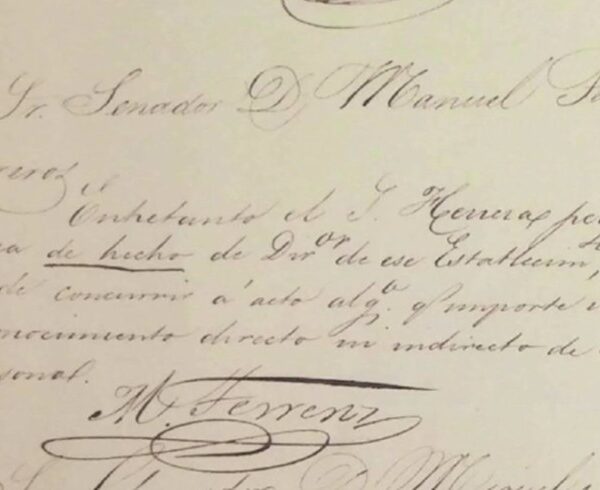 Sr. Senador D Manuel
Entretanto el S. Herrera pe
a de hecho de Dir.or de ese Establecim
de concurrir á acto alg.o q.e importe
nocimiento directo ni indirecto de
sonal.
M. Ferrenz
D Miguel